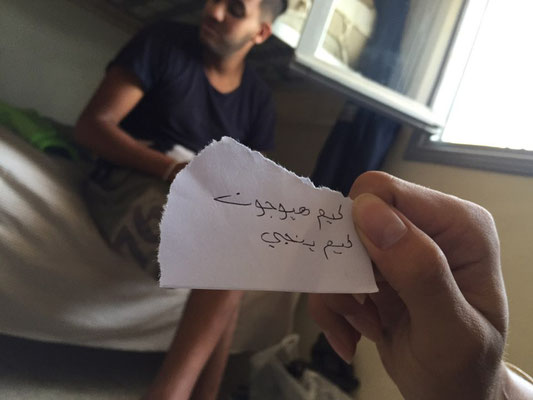 كيم هيوجون
كيم ينجي